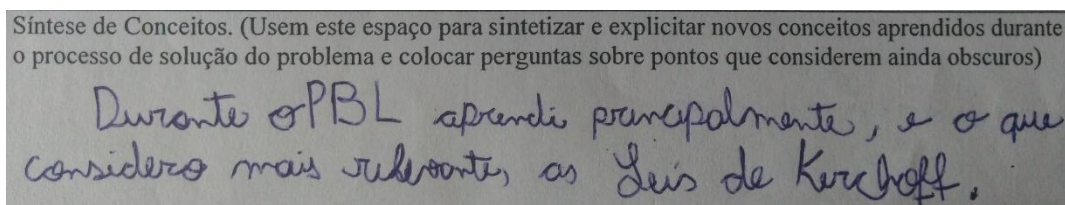 Síntese de Conceitos. (Usem este espaço para sintetizar e explicitar novos conceitos aprendidos durante
o processo de solução do problema e colocar perguntas sobre pontos que considerem ainda obscuros)
Durante o PBL aprendi principalmente, e o que
considero mais relevante, as Leis de Kirchhoff.